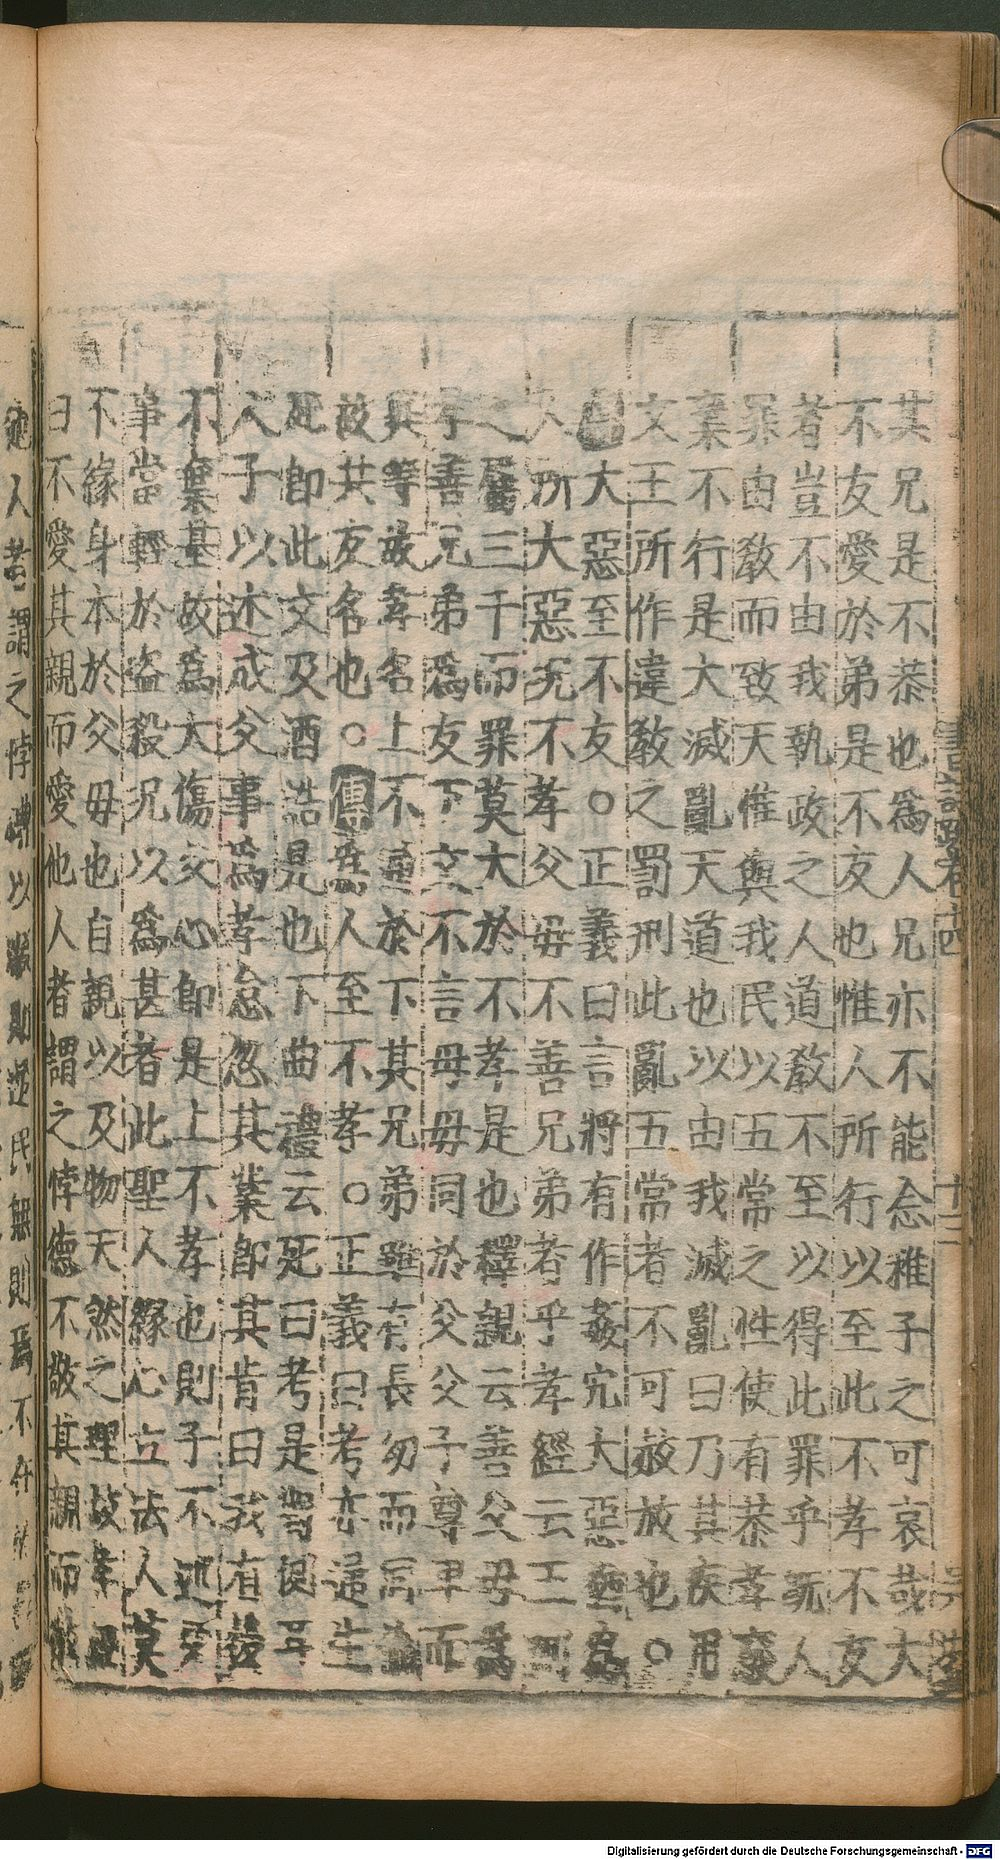 其兄是不恭也為人兄亦不能念稚子之可哀哉大
不友愛於弟是不友也惟人所行以至此不孝不友
者豈不由我執政之人道教不至以得此罪乎既人
罪由教而致天惟與我民以五常之性使有恭孝廢
棄不行是大滅亂天道也以由我滅亂曰乃其疾用
文王所作違教之罰刑此亂五常者不可赦放也○
大惡至不友○正義曰言將有作姦宄大惡
人所大惡況不孝父母不善兄弟者乎孝經云五刑
之屬三千而罪莫大於不孝是也釋親云善父母為
孝善兄弟為友下文不言母母同於父父子尊卑而
異等故孝名上不通於下其兄弟雖有長幼而同
故共友名也○傳為人至不孝○正義曰考亦通生
死即此文及酒誥是也下曲禮云死曰考是對
人子以述成父事為孝怠忽其業即其肯曰我有後
不棄基故為大傷父心即是上不孝也則子不述父
事當輕於盜殺況以為甚者此聖人緣心立法人莫
不緣身本於父母也自親以及物天然之理故孝
曰不愛其親而愛他人者謂之悖德不敬其親而敬
他人者謂之悖禮以順則逆民無則焉不在
十三
Digitalisierung gefördert durch die Deutsche Forschungsgemeinschaft - DFG